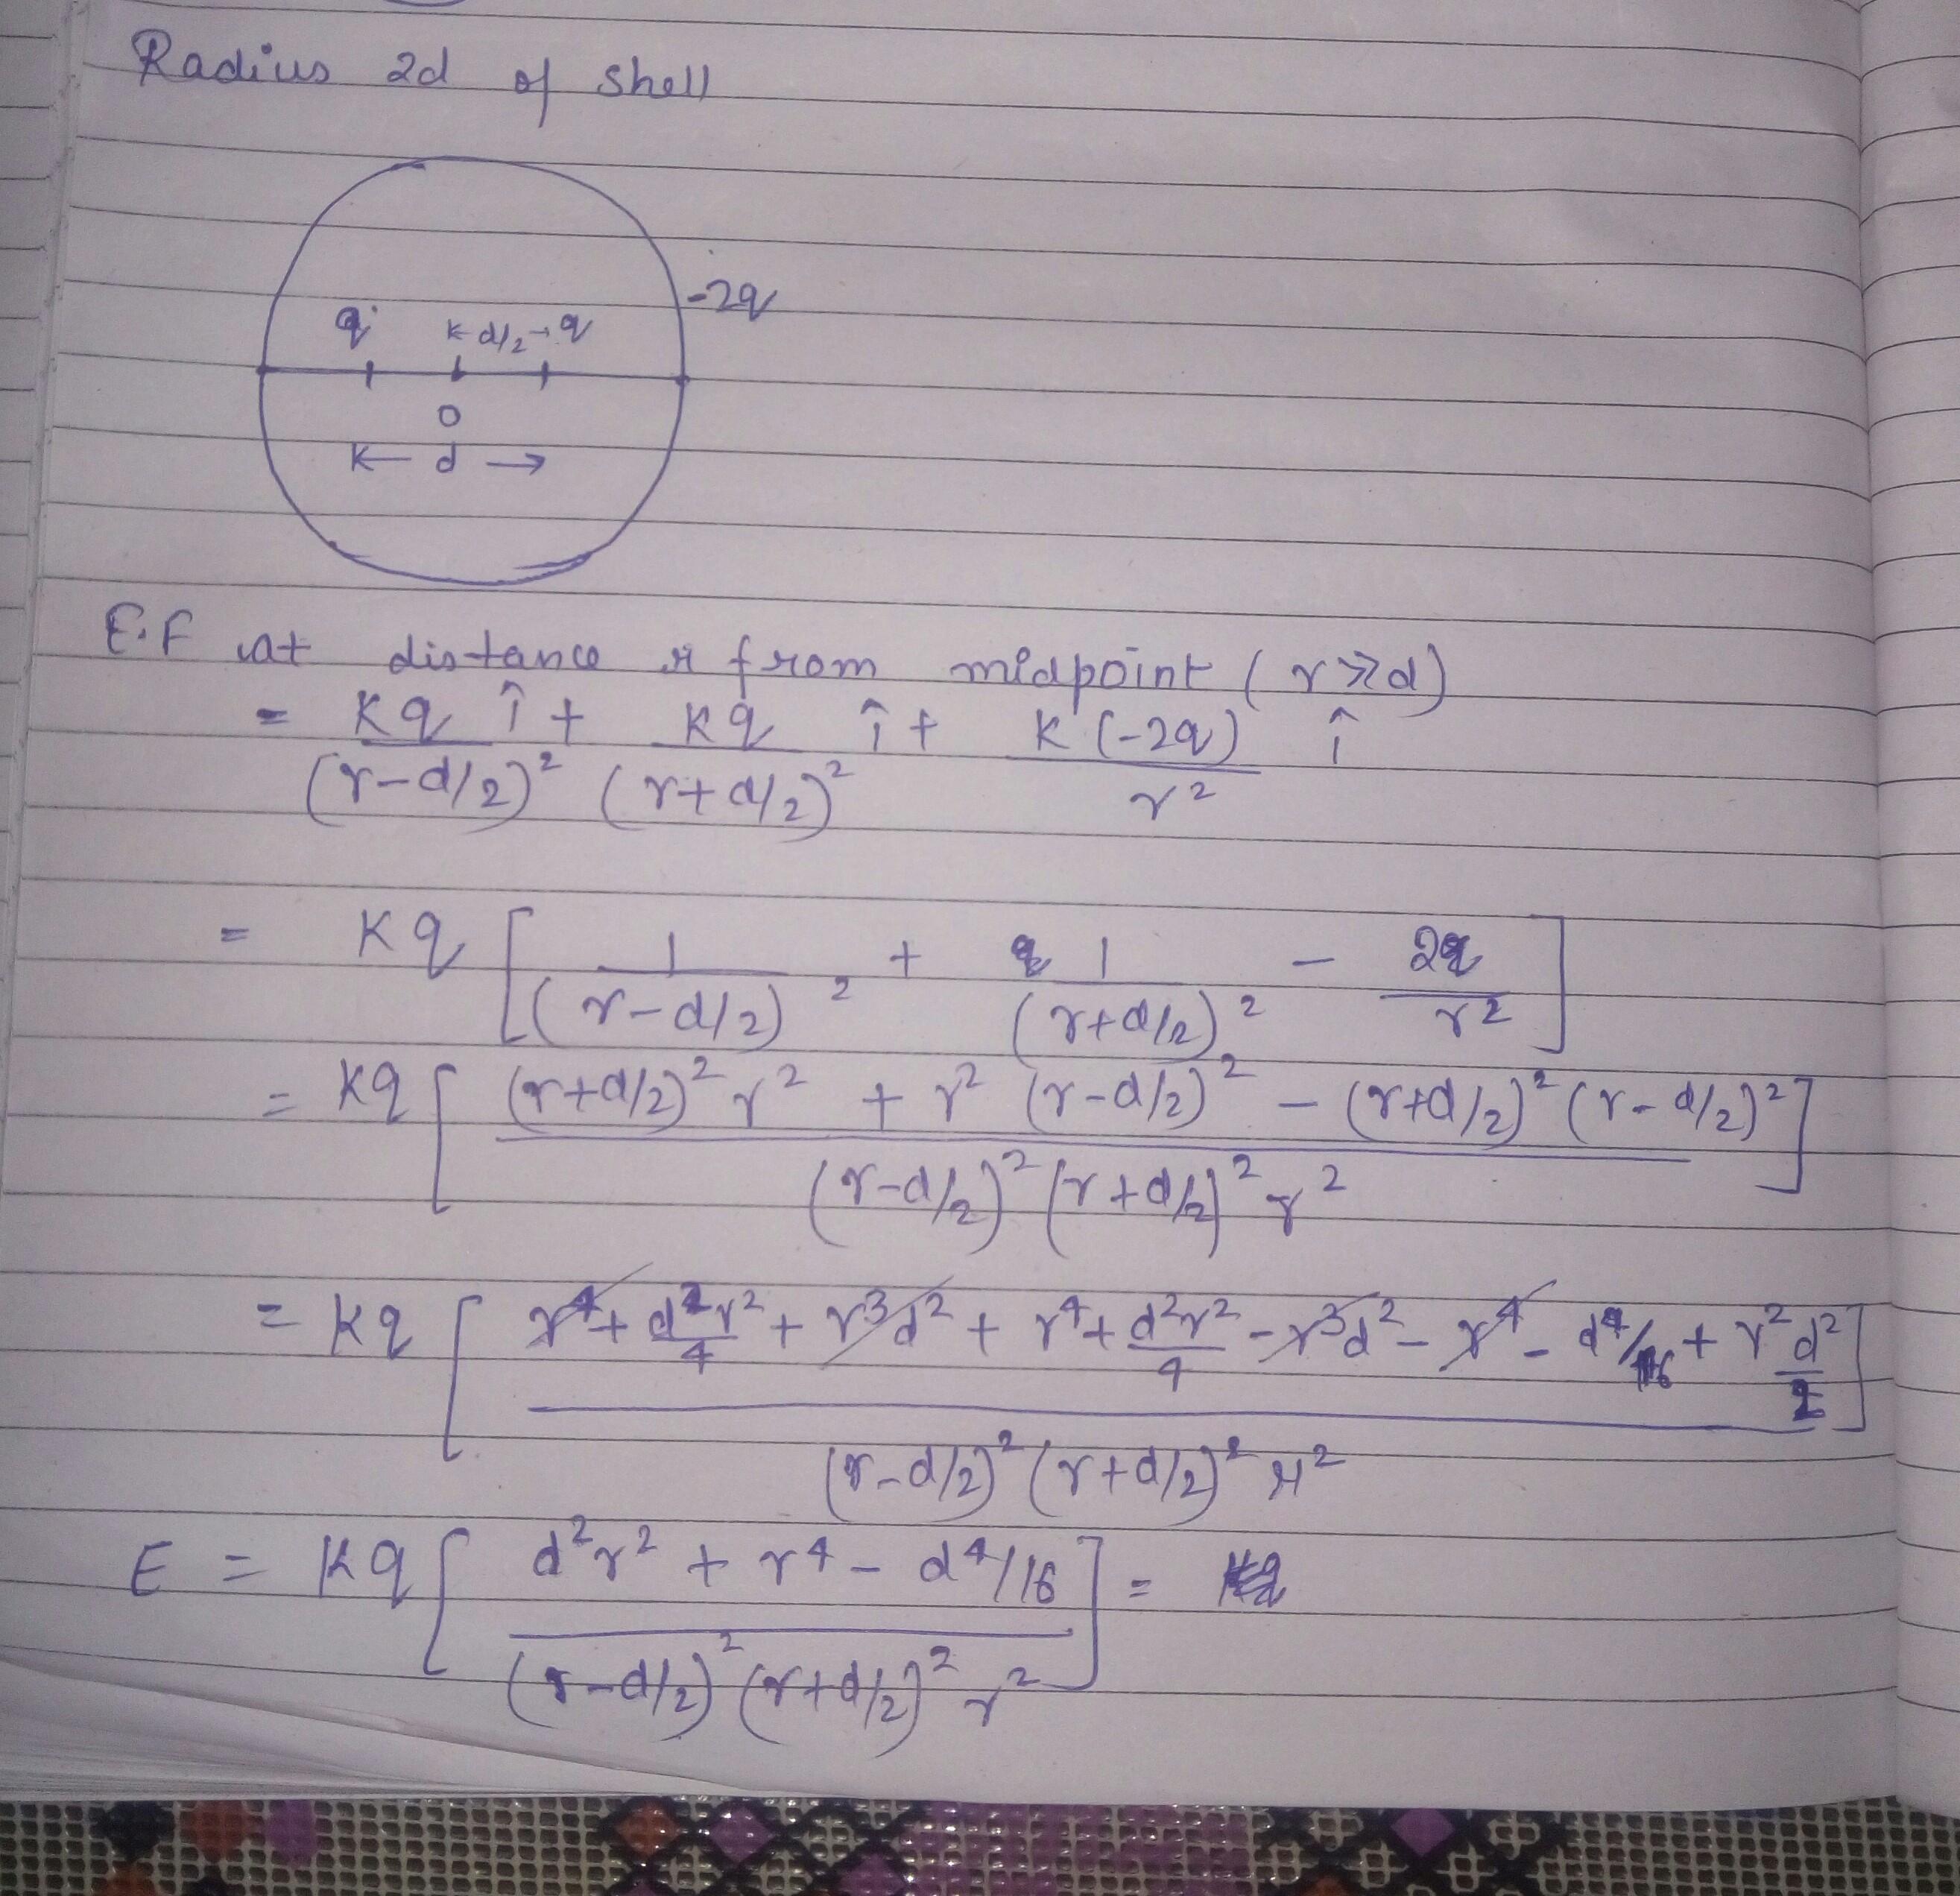 Radius 2d of shell
-2q
q k d/2 → q
O
k— d →
E.F at distance r from midpoint (r>>d)
= Kq î + Kq î + K(-2q) î
(r-d/2)² (r+d/2)² r²
= Kq [ 1 + 1 - 2 ]
(r-d/2)² (r+d/2)² r²
= Kq [ (r+d/2)² r² + r² (r-d/2)² - (r+d/2)² (r-d/2)² ]
(r-d/2)² (r+d/2)² r²
= Kq [ r⁴ + d²r² + r³d² + r⁴ + d²r² - r³d² - r⁴ - d⁴/16 + r² d² ]
4 4 2
(r-d/2)² (r+d/2)² r²
E = Kq [ d²r² + r⁴ - d⁴/16 ] =
(r-d/2)² (r+d/2)² r²